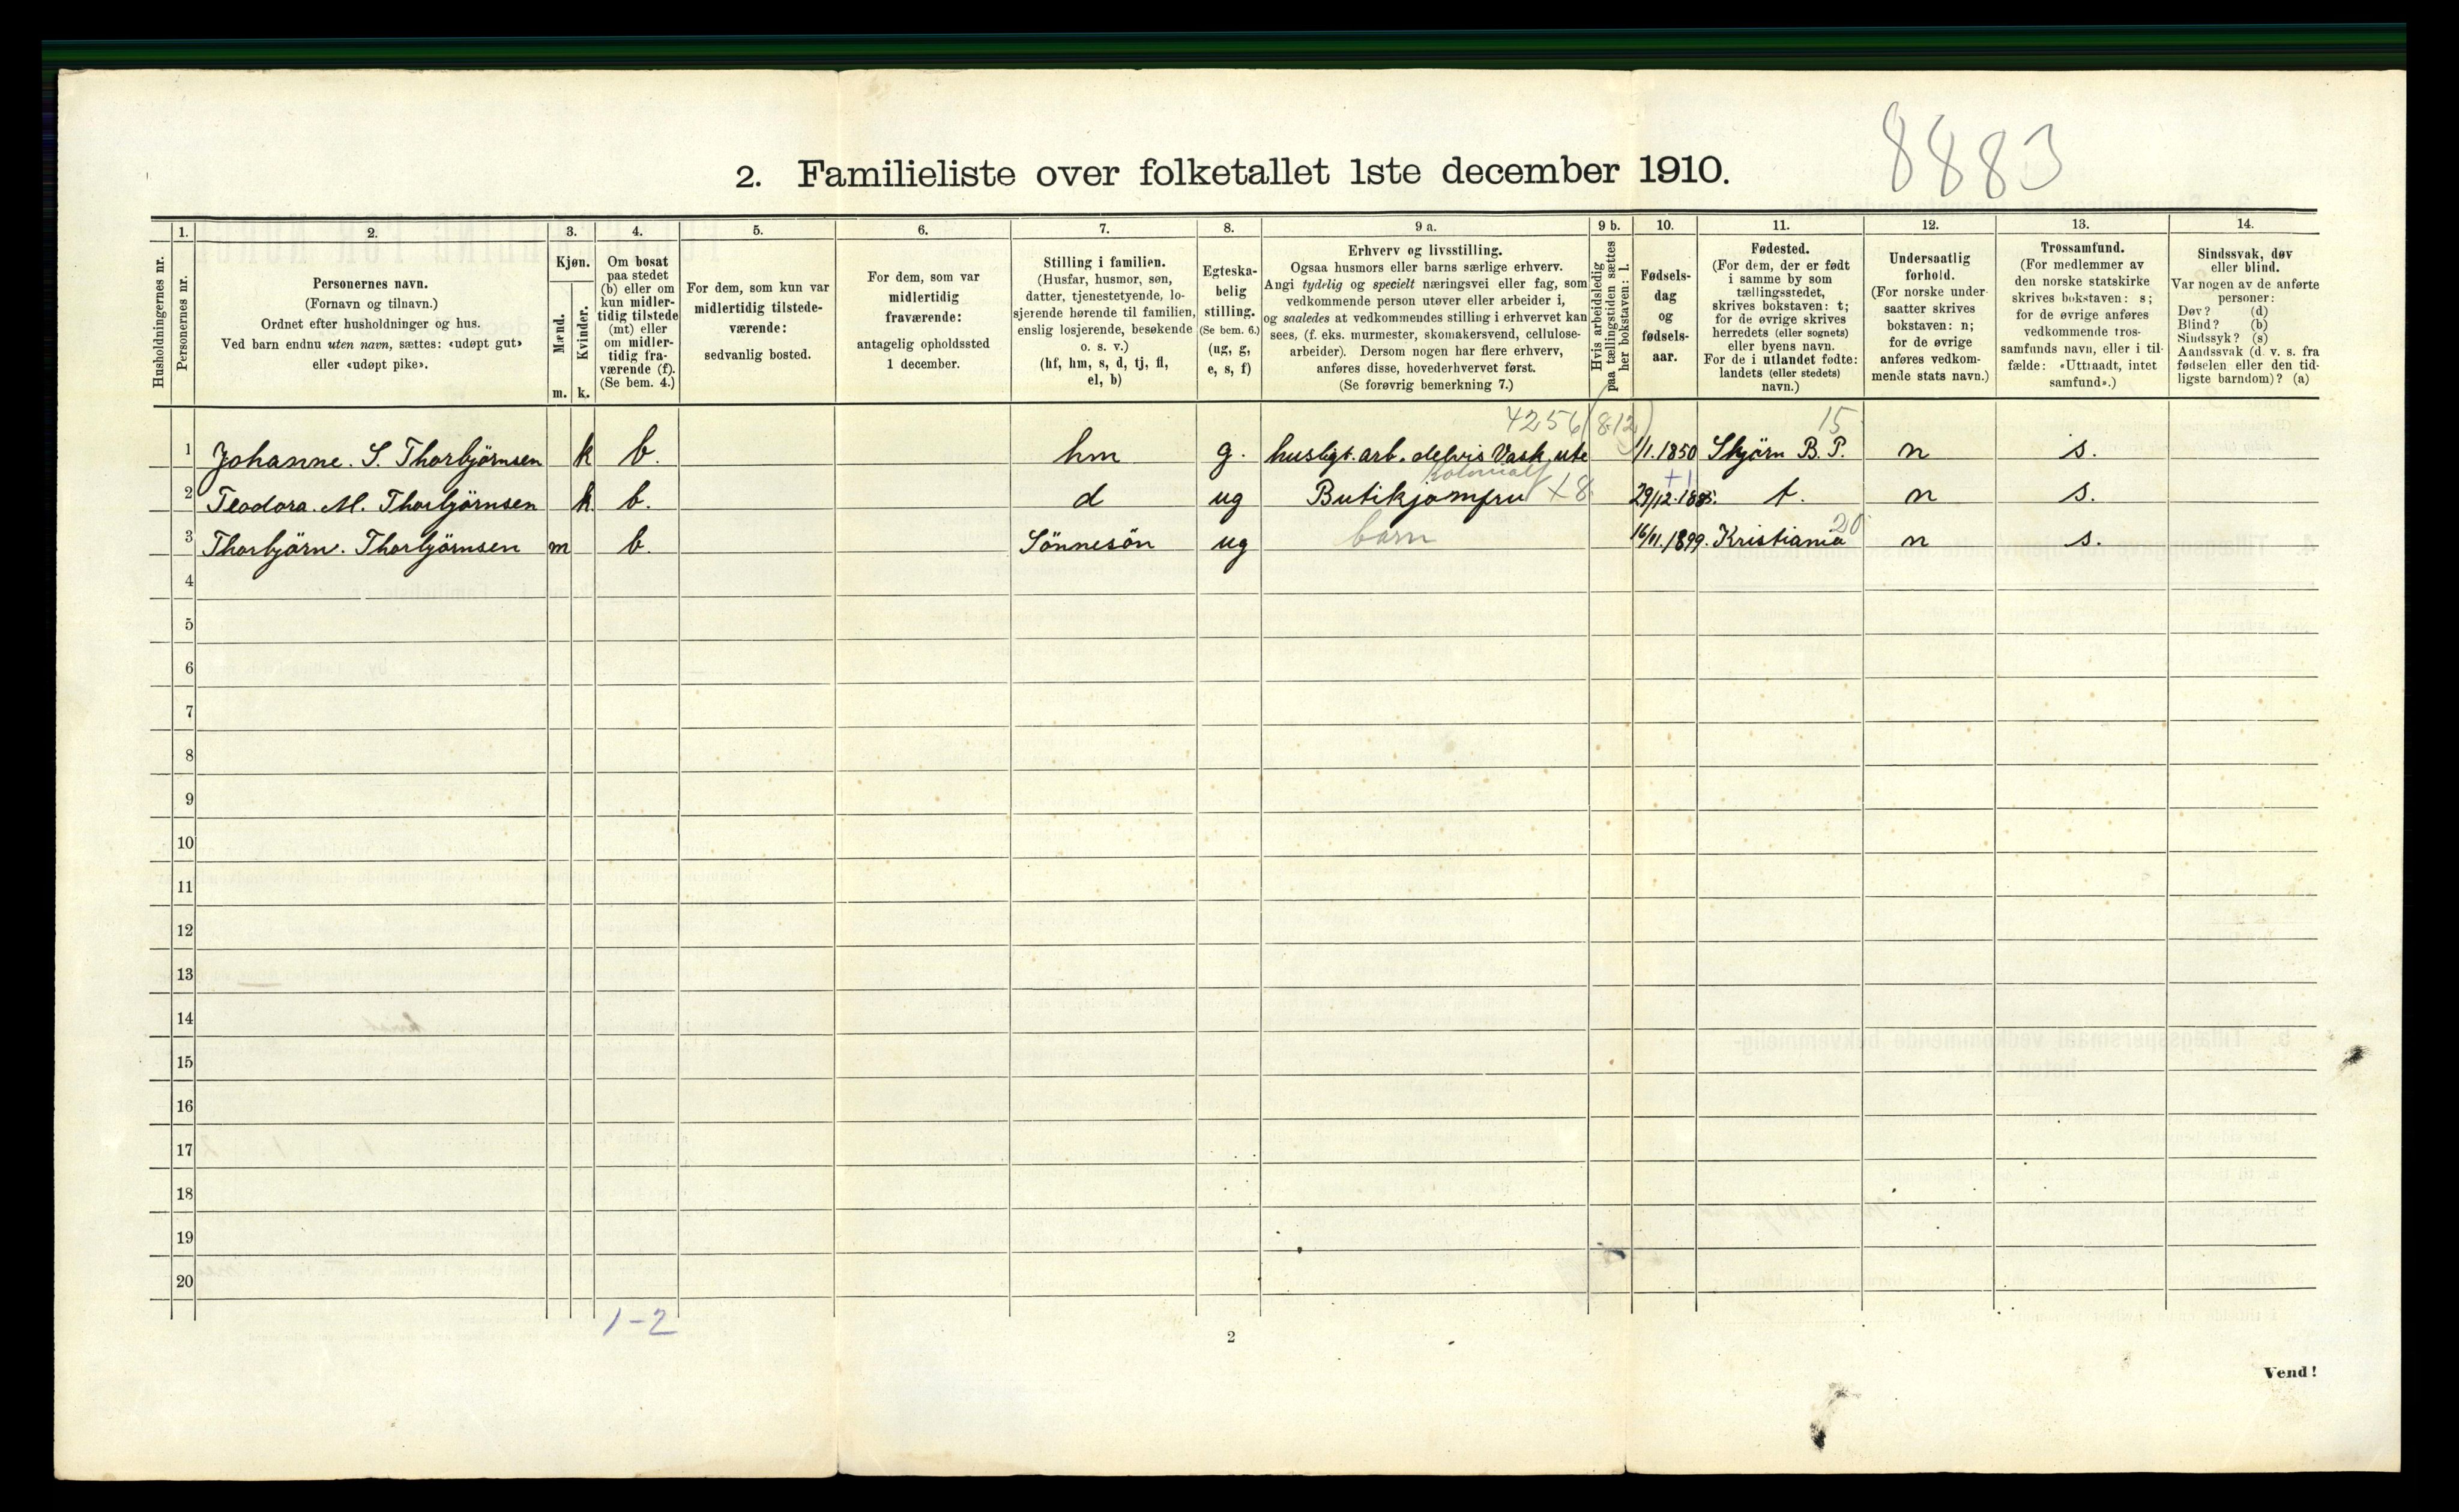 8883
2. Familieliste over folketallet 1ste december 1910.
1. 2. 3. 4. 5. 6. 7. 8. 9 a. 9 b. 10. 11. 12. 13. 14.
Husholdningernes nr.
Personernes nr.
Personernes navn.
(Fornavn og tilnavn.)
Ordnet efter husholdninger og hus.
Ved barn endnu uten navn, sættes: «udøpt gut»
eller «udøpt pike».
Kjøn.
Mænd.
Kvinder.
m. k.
Om bosat
paa stedet
(b) eller om
kun midler-
tidig tilstede
(mt) eller
om midler-
tidig fra-
værende (f).
(Se bem. 4.)
For dem, som kun var
midlertidig tilstede-
værende:
sedvanlig bosted.
For dem, som var
midlertidig
fraværende:
antagelig opholdssted
1 december.
Stilling i familien.
(Husfar, husmor, søn,
datter, tjenestetyende, lo-
sjerende hørende til familien,
enslig losjerende, besøkende
o. s. v.)
(hf, hm, s, d, tj, fl,
el, b)
Egteska-
belig
stilling.
(Se bem. 6.)
(ug, g,
e, s, f)
Erhverv og livsstilling.
Ogsaa husmors eller barns særlige erhverv.
Angi tydelig og specielt næringsvei eller fag, som
vedkommende person utøver eller arbeider i,
og saaledes at vedkommendes stilling i erhvervet kan
sees, (f. eks. murmester, skomakersvend, cellulose-
arbeider). Dersom nogen har flere erhverv,
anføres disse, hovederhvervet først.
(Se forøvrig bemerkning 7.)
Hvis arbeidsledig
paa tællingstiden sættes
her bokstaven: l.
Fødsels-
dag
og
fødsels-
aar.
Fødested.
(For dem, der er født
i samme by som
tællingsstedet,
skrives bokstaven: t;
for de øvrige skrives
herredets (eller sognets)
eller byens navn.
For de i utlandet fødte:
landets (eller stedets)
navn.)
Undersaatlig
forhold.
(For norske under-
saatter skrives
bokstaven: n;
for de øvrige
anføres vedkom-
mende stats navn.)
Trossamfund.
(For medlemmer av
den norske statskirke
skrives bokstaven: s;
for de øvrige anføres
vedkommende tros-
samfunds navn, eller i til-
fælde: «Uttraadt, intet
samfund».)
Sindssvak, døv
eller blind.
Var nogen av de anførte
personer:
Døv? (d)
Blind? (b)
Sindssyk? (s)
Aandssvak (d. v. s. fra
fødselen eller den tid-
ligste barndom)? (a)
4256 (812) 15
1 Johanne. S. Thorbjörnsen k b. hm g. husligt. arb. delvis Vask ute 1/1.1850 Skjörn B. P. n s.
kolonialf + 1
2 Teodora. M. Thorbjörnsen k b. d ug Butikjomfru +8 29/12.1885. t. n s.
20
3 Thorbjörn. Thorbjörnsen m b. Sönnesön ug barn 16/11.1899. Kristiania n s.
4
5
6
7
8
9
10
11
12
13
14
15
16
17
18
19
20
1-2
2
Vend!